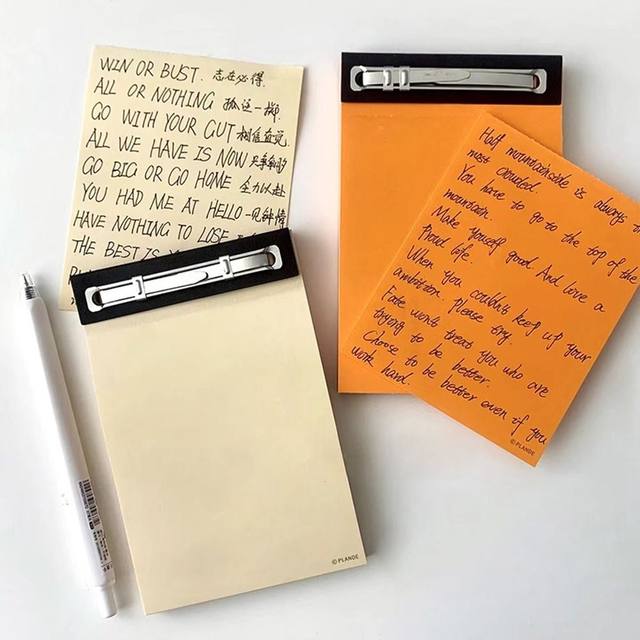 WIN OR BUST. 志在必得.
ALL OR NOTHING 孤注一掷.
GO WITH YOUR GUT 相信直觉.
ALL WE HAVE IS NOW
GO BIG OR GO HOME 全力以赴
YOU HAD ME AT HELLO 一见钟情
HAVE NOTHING TO LOSE
THE BEST IS
Half mountainside is always
most crowded.
You have to go to the top of the
mountain.
Make yourself good. And love a
Proud life.
When you couldn't keep up your
ambition. Please try.
Fate won't treat you who are
trying to be better.
Choose to be better even if you
work hard.
© PLANDE
© PLANDE